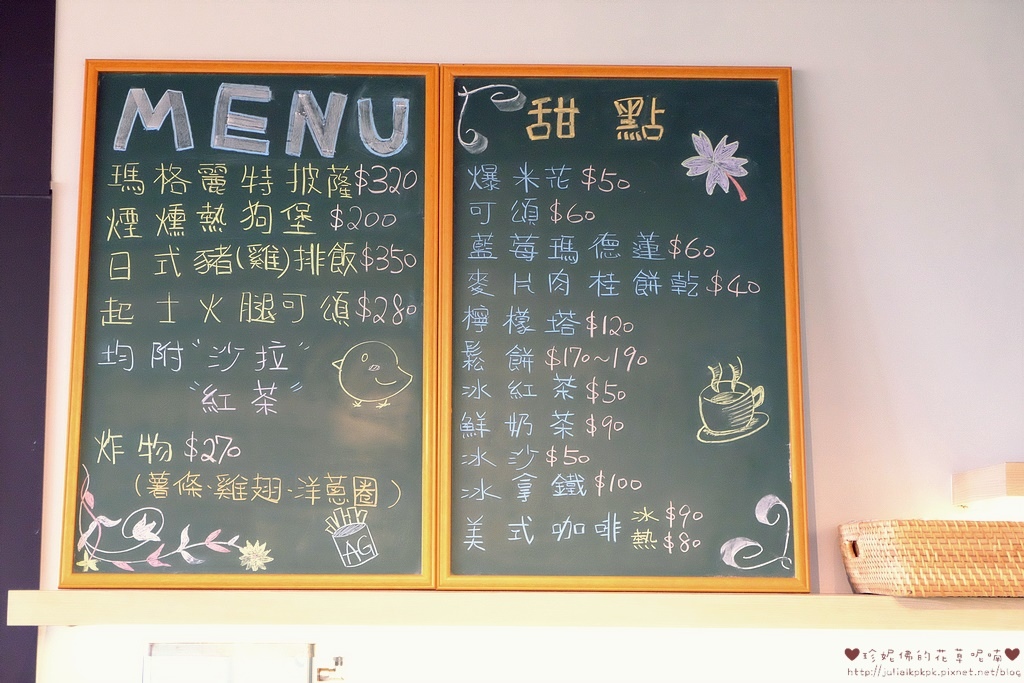 MENU
瑪格麗特披薩$320
煙燻熱狗堡 $200
日式豬(雞)排飯$350
起士火腿可頌$280
均附"沙拉"
"紅茶"
炸物 $270
(薯條、雞翅、洋蔥圈)
AG
甜點
爆米花 $50
可頌 $60
藍莓瑪德蓮$60
麥片肉桂餅乾$40
檸檬塔$120
鬆餅$170~190
冰紅茶$50
鮮奶茶$90
冰沙$50
冰拿鐵$100
美式咖啡 冰 $90
熱 $80
♥珍妮佛的花草呢喃♥
http://juliaikpkpk.pixnet.net/blog